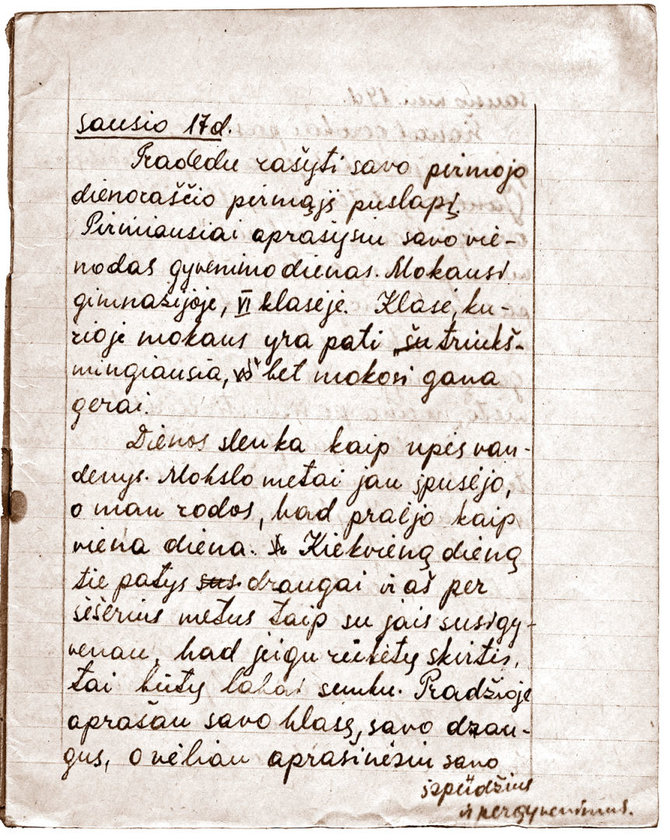 sausio 17d.
Pradedu rašyti savo pirmojo
dienoraščio pirmąjį puslapį.
Pirmiausiai aprašysiu savo vie-
nodas gyvenimo dienas. Mokausi
gimnazijoje, VI klasėje. Klasė, ku-
rioje mokaus yra pati triukš-
mingiausia, bet mokosi gana
gerai.
Dienos slenka kaip upės van-
denys. Mokslo metai jau įpusėjo,
o man rodos, kad praėjo kaip
viena diena. Kiekvieną dieną
tie patys draugai ir aš per
šešerius metus taip su jais susigy-
venau, kad jeigu reikėtų skirtis,
tai būtų labai sunku. Pradžioje
aprašau savo klasę, savo drau-
gus, o vėliau aprašinėsiu savo
įspūdžius
ir pergyvenimus.